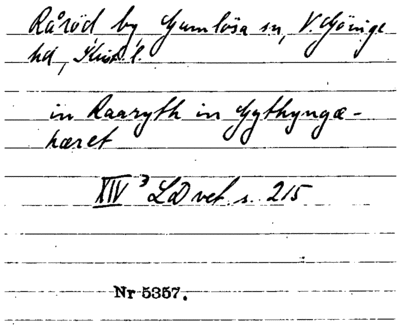 Råröd by Gumlösa sn, V. Göinge
hd, Krist. l.
in Raaryth in Gythyngæ-
hæret
XIV³ LD vet. s. 215
Nr 5357.